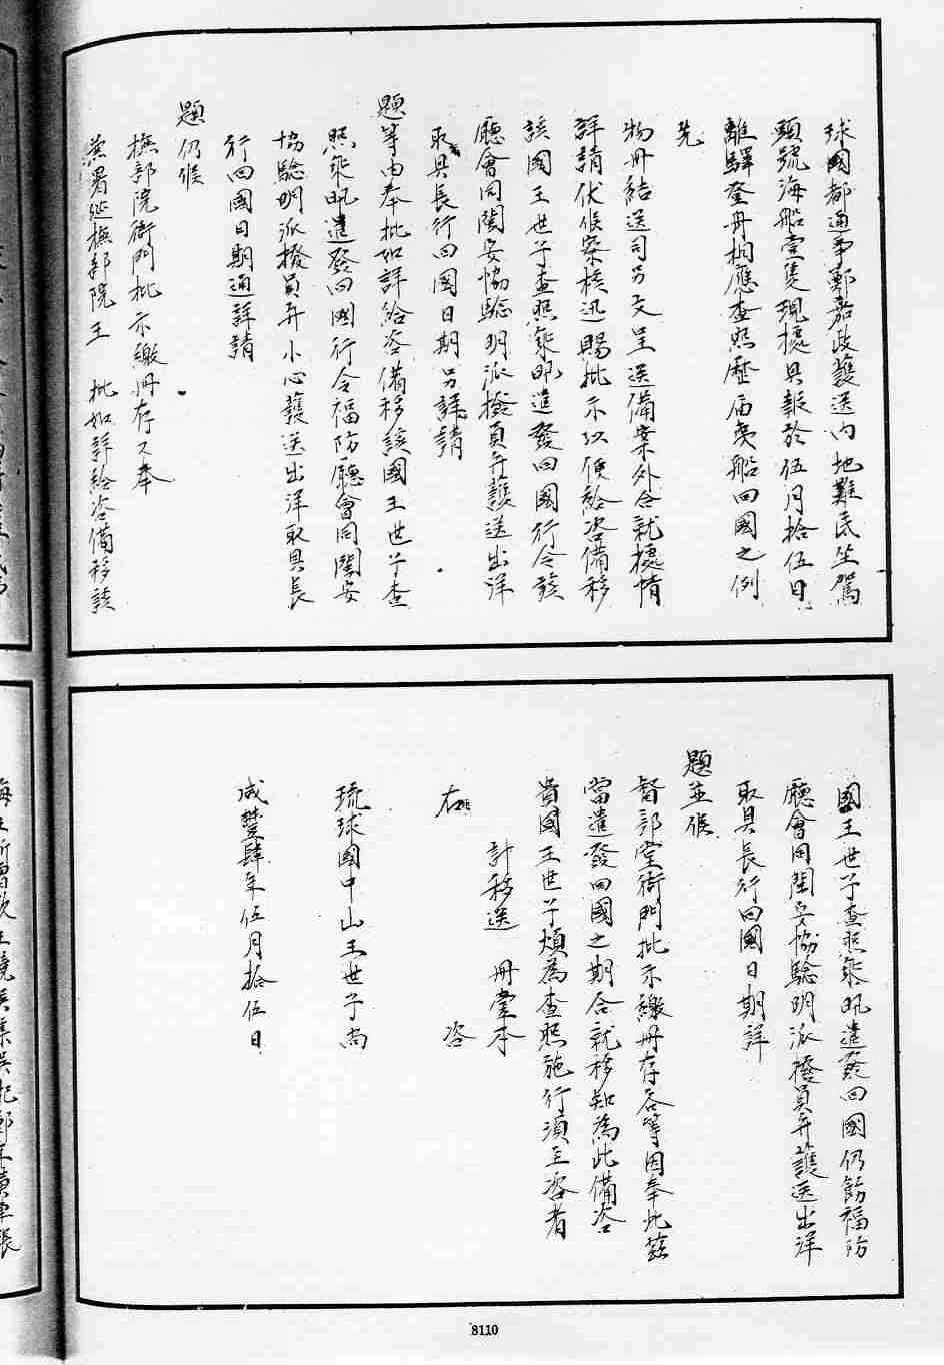 球國都通事鄭嘉政護送內地難民坐駕
頭號海船壹隻現據具報於伍月拾伍日
離驛登舟相應查照歷届夷船回國之例
先
物冊結送司另文呈送備案外合就據情
詳請伏候察核迅賜批示以便給咨備移
該國王世子查照案明遣發回國行令該
廳會同閩安協驗明派撥員弁護送出洋
取具長行回國日期另詳請
題等由奉批如詳給咨備移該國王世子查
照案明遣發回國行令福防廳會同閩安
協驗明派撥員弁小心護送出洋取具長
行回國日期通詳請
題仍候
撫部院衙門批示繳冊存又奉
兼署巡撫部院王 批如詳給咨備移該
國王世子查照案明遣發回國仍飭福防
廳會同閩安協驗明派撥員弁護送出洋
取具長行回國日期詳
題並候
督部堂衙門批示繳冊存各等因奉此茲
當遣發回國之期合就移知為此備咨
貴國王世子煩為查照施行須至咨者
計移送 冊壹本
右 咨
琉球國中山王世子尚
咸豐肆年伍月拾伍日
8110